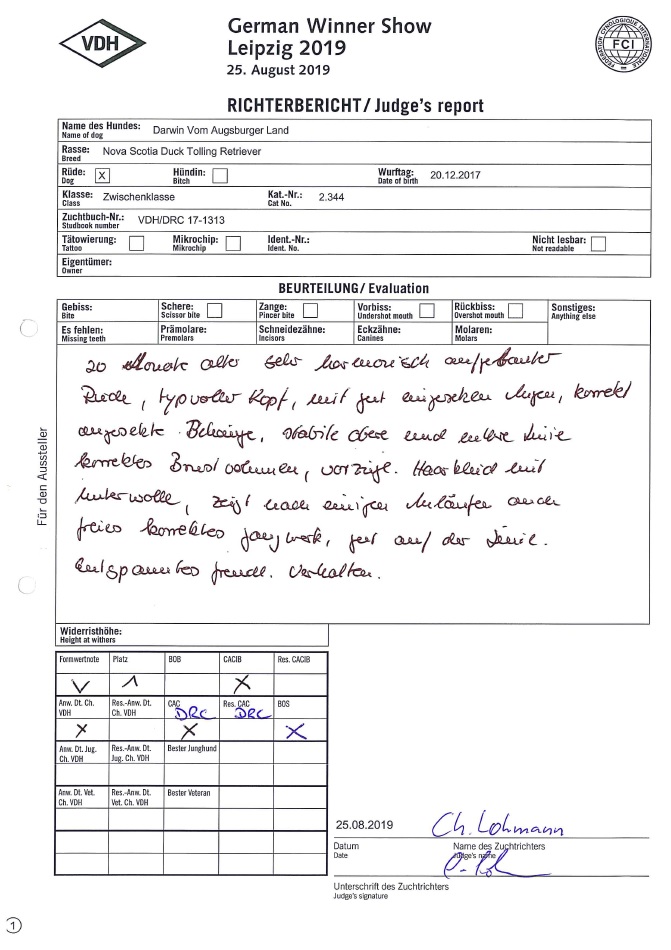 VDH
German Winner Show
Leipzig 2019
25. August 2019
FEDERATION CYNOLOGIQUE INTERNATIONALE
FCI
RICHTERBERICHT/Judge's report
Name des Hundes: Darwin Vom Augsburger Land
Name of dog
Rasse: Nova Scotia Duck Tolling Retriever
Breed
Rüde: X Hündin: Wurftag: 20.12.2017
Dog Bitch Date of birth
Klasse: Zwischenklasse Kat.-Nr.: 2.344
Class Cat No.
Zuchtbuch-Nr.: VDH/DRC 17-1313
Studbook number
Tätowierung: Mikrochip: Ident.-Nr.: Nicht lesbar:
Tattoo Mikrochip Ident. No. Not readable
Eigentümer:
Owner
BEURTEILUNG/Evaluation
Gebiss: Schere: Zange: Vorbiss: Rückbiss: Sonstiges:
Bite Scissor bite Pincer bite Undershot mouth Overshot mouth Anything else
Es fehlen: Prämolare: Schneidezähne: Eckzähne: Molaren:
Missing teeth Premolars Incisors Canines Molars
20 Monate alter sehr harmonisch aufgebauter
Rüde, typvoller Kopf, mit gut eingesetzten Augen, korrekt
angesetzte Behänge, stabile obere und untere Linie
korrektes Brustvolumen, vorzügl. Haarkleid mit
Unterwolle, zeigt nach einigen Anläufen auch
freies korrektes Gangwerk, gut auf der Linie.
Entspanntes freudl. Verhalten.
Für den Aussteller
Widerristhöhe:
Height at withers
Formwertnote Platz BOB CACIB Res. CACIB
V 1 X
Anw. Dt. Ch. VDH Res.-Anw. Dt. Ch. VDH CAC DRC Res. CAC DRC BOS
X X X
Anw. Dt. Jug. Ch. VDH Res.-Anw. Dt. Jug. Ch. VDH Bester Junghund
Anw. Dt. Vet. Ch. VDH Res.-Anw. Dt. Vet. Ch. VDH Bester Veteran
25.08.2019 Ch. Lohmann
Datum Name des Zuchtrichters
Date Judge's name
Unterschrift des Zuchtrichters
Judge's signature
1